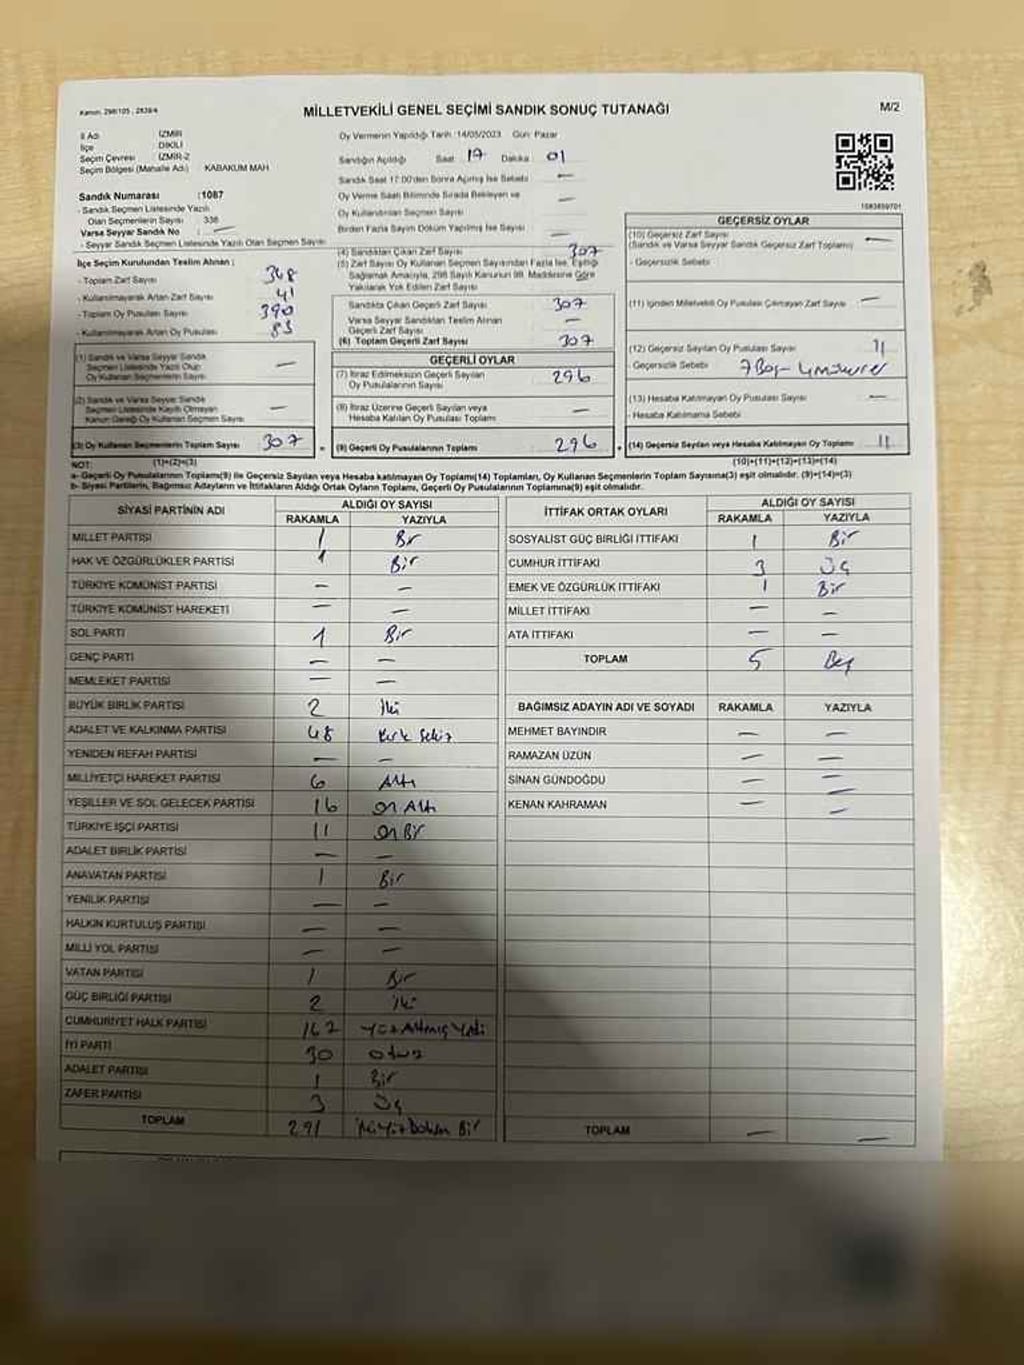 Kanun: 298/105, 2839/4
MİLLETVEKİLİ GENEL SEÇİMİ SANDIK SONUÇ TUTANAĞI
M/2
İl Adı İZMİR
İlçe DİKİLİ
Seçim Çevresi İZMİR-2
Seçim Bölgesi (Mahalle Adı) KABAKUM MAH
Sandık Numarası :1087
- Sandık Seçmen Listesinde Yazılı
Olan Seçmenlerin Sayısı : 338
Varsa Seyyar Sandık No : —
- Seyyar Sandık Seçmen Listesinde Yazılı Olan Seçmen Sayısı
Oy Vermenin Yapıldığı Tarih :14/05/2023 Gün: Pazar
Sandığın Açıldığı Saat 17 Dakika 01
Sandık Saat 17:00'den Sonra Açılmış İse Sebebi —
Oy Verme Saati Bitiminde Sırada Bekleyen ve
Oy Kullandırılan Seçmen Sayısı —
Birden Fazla Sayım Döküm Yapılmış İse Sayısı —
1083859701
İlçe Seçim Kurulundan Teslim Alınan ;
- Toplam Zarf Sayısı 348
- Kullanılmayarak Artan Zarf Sayısı 41
- Toplam Oy Pusulası Sayısı 390
- Kullanılmayarak Artan Oy Pusulası 83
(1) Sandık ve Varsa Seyyar Sandık
Seçmen Listesinde Yazılı Olup
Oy Kullanan Seçmenlerin Sayısı —
(2) Sandık ve Varsa Seyyar Sandık
Seçmen Listesinde Kayıtlı Olmayan
Kanun Gereği Oy Kullanan Seçmen Sayısı —
(3) Oy Kullanan Seçmenlerin Toplam Sayısı 307 =
(4) Sandıktan Çıkan Zarf Sayısı 307
(5) Zarf Sayısı Oy Kullanan Seçmen Sayısından Fazla İse, Eşitliği
Sağlamak Amacıyla, 298 Sayılı Kanunun 98. Maddesine Göre
Yakılarak Yok Edilen Zarf Sayısı
Sandıkta Çıkan Geçerli Zarf Sayısı 307
Varsa Seyyar Sandıktan Teslim Alınan
Geçerli Zarf Sayısı —
(6) Toplam Geçerli Zarf Sayısı 307
GEÇERLİ OYLAR
(7) İtiraz Edilmeksizin Geçerli Sayılan
Oy Pusulalarının Sayısı 296
(8) İtiraz Üzerine Geçerli Sayılan veya
Hesaba Katılan Oy Pusulası Toplamı —
(9) Geçerli Oy Pusulalarının Toplamı 296 +
GEÇERSİZ OYLAR
(10) Geçersiz Zarf Sayısı
(Sandık ve Varsa Seyyar Sandık Geçersiz Zarf Toplamı) —
- Geçersizlik Sebebi
(11) İçinden Milletvekili Oy Pusulası Çıkmayan Zarf Sayısı —
(12) Geçersiz Sayılan Oy Pusulası Sayısı 11
- Geçersizlik Sebebi 7 Boş - 4 mükerrer
(13) Hesaba Katılmayan Oy Pusulası Sayısı —
- Hesaba Katılmama Sebebi
(14) Geçersiz Sayılan veya Hesaba Katılmayan Oy Toplamı 11
NOT: (1)+(2)=(3) (10)+(11)+(12)+(13)=(14)
a- Geçerli Oy Pusulalarının Toplamı(9) ile Geçersiz Sayılan veya Hesaba katılmayan Oy Toplamı(14) Toplamları, Oy Kullanan Seçmenlerin Toplam Sayısına(3) eşit olmalıdır. (9)+(14)=(3)
b- Siyasi Partilerin, Bağımsız Adayların ve İttifakların Aldığı Ortak Oyların Toplamı, Geçerli Oy Pusulalarının Toplamına(9) eşit olmalıdır.
SİYASİ PARTİNİN ADI ALDIĞI OY SAYISI
RAKAMLA YAZIYLA
MİLLET PARTİSİ 1 Bir
HAK VE ÖZGÜRLÜKLER PARTİSİ 1 Bir
TÜRKİYE KOMÜNİST PARTİSİ — —
TÜRKİYE KOMÜNİST HAREKETİ — —
SOL PARTİ 1 Bir
GENÇ PARTİ — —
MEMLEKET PARTİSİ — —
BÜYÜK BİRLİK PARTİSİ 2 İki
ADALET VE KALKINMA PARTİSİ 48 Kırk Sekiz
YENİDEN REFAH PARTİSİ — —
MİLLİYETÇİ HAREKET PARTİSİ 6 Altı
YEŞİLLER VE SOL GELECEK PARTİSİ 16 On Altı
TÜRKİYE İŞÇİ PARTİSİ 11 On Bir
ADALET BİRLİK PARTİSİ — —
ANAVATAN PARTİSİ 1 Bir
YENİLİK PARTİSİ — —
HALKIN KURTULUŞ PARTİSİ — —
MİLLİ YOL PARTİSİ — —
VATAN PARTİSİ 1 Bir
GÜÇ BİRLİĞİ PARTİSİ 2 İki
CUMHURİYET HALK PARTİSİ 167 Yüz Altmış Yedi
İYİ PARTİ 30 Otuz
ADALET PARTİSİ 1 Bir
ZAFER PARTİSİ 3 Üç
TOPLAM 291 İki Yüz Doksan Bir
İTTİFAK ORTAK OYLARI ALDIĞI OY SAYISI
RAKAMLA YAZIYLA
SOSYALİST GÜÇ BİRLİĞİ İTTİFAKI 1 Bir
CUMHUR İTTİFAKI 3 Üç
EMEK VE ÖZGÜRLÜK İTTİFAKI 1 Bir
MİLLET İTTİFAKI — —
ATA İTTİFAKI — —
TOPLAM 5 Beş
BAĞIMSIZ ADAYIN ADI VE SOYADI RAKAMLA YAZIYLA
MEHMET BAYINDIR — —
RAMAZAN UZUN — —
SİNAN GÜNDOĞDU — —
KENAN KAHRAMAN — —
TOPLAM — —